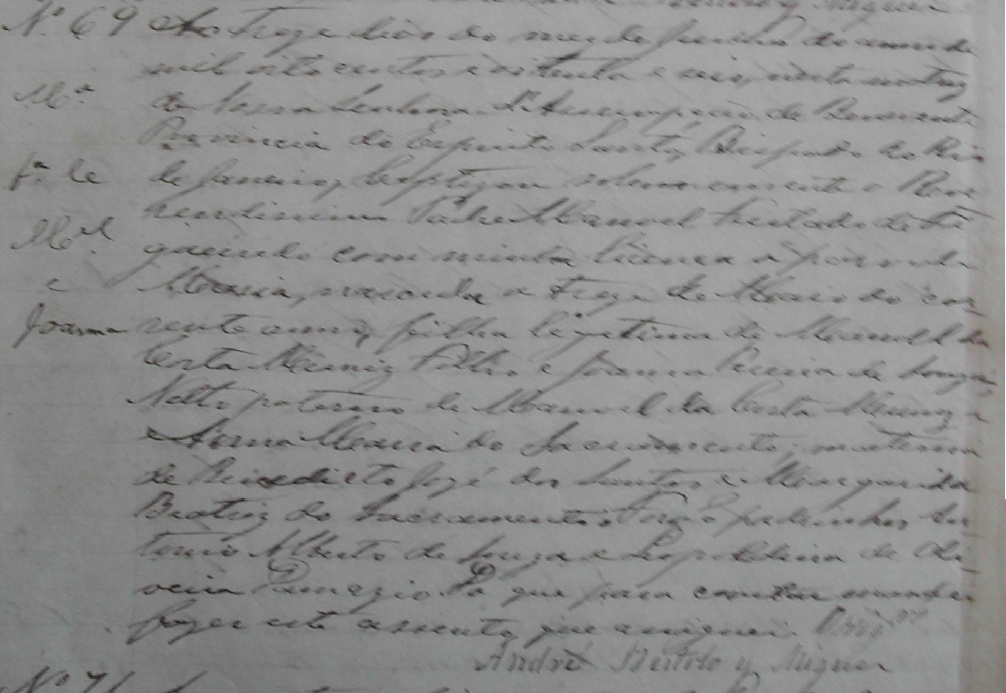 Nº 69 Ao treze dias do mez de Junho do anno de
mil oito centos e oitenta e seis, nesta matriz
Mª de Nossa Senhora d'Assumpção de Benevente
Provincia do Espirito Santo, Bispado do Rio
fª le de Janeiro, baptizou solemnemente o Reve
rendissimo Padre Manoel Furtado de Fi
Mel gueiredo com minha licença a parvula
e Maria, nascida a treze de Maio do cor
Joanna rente anno, filha legitima de Manoel da
Costa Muniz Filho e Joanna Maria de Souza
Netto paterno de Manoel da Costa Muniz
e Anna Maria do Sacramento; materna
de Benedicto José dos Santos e Margarida
Beatriz do Sacramento. Forão padrinhos An
tonio Alberto de Souza e Leopoldina de Oli
veira Do que para constar mandei
fazer este assento que assignei.
André
Nº 71